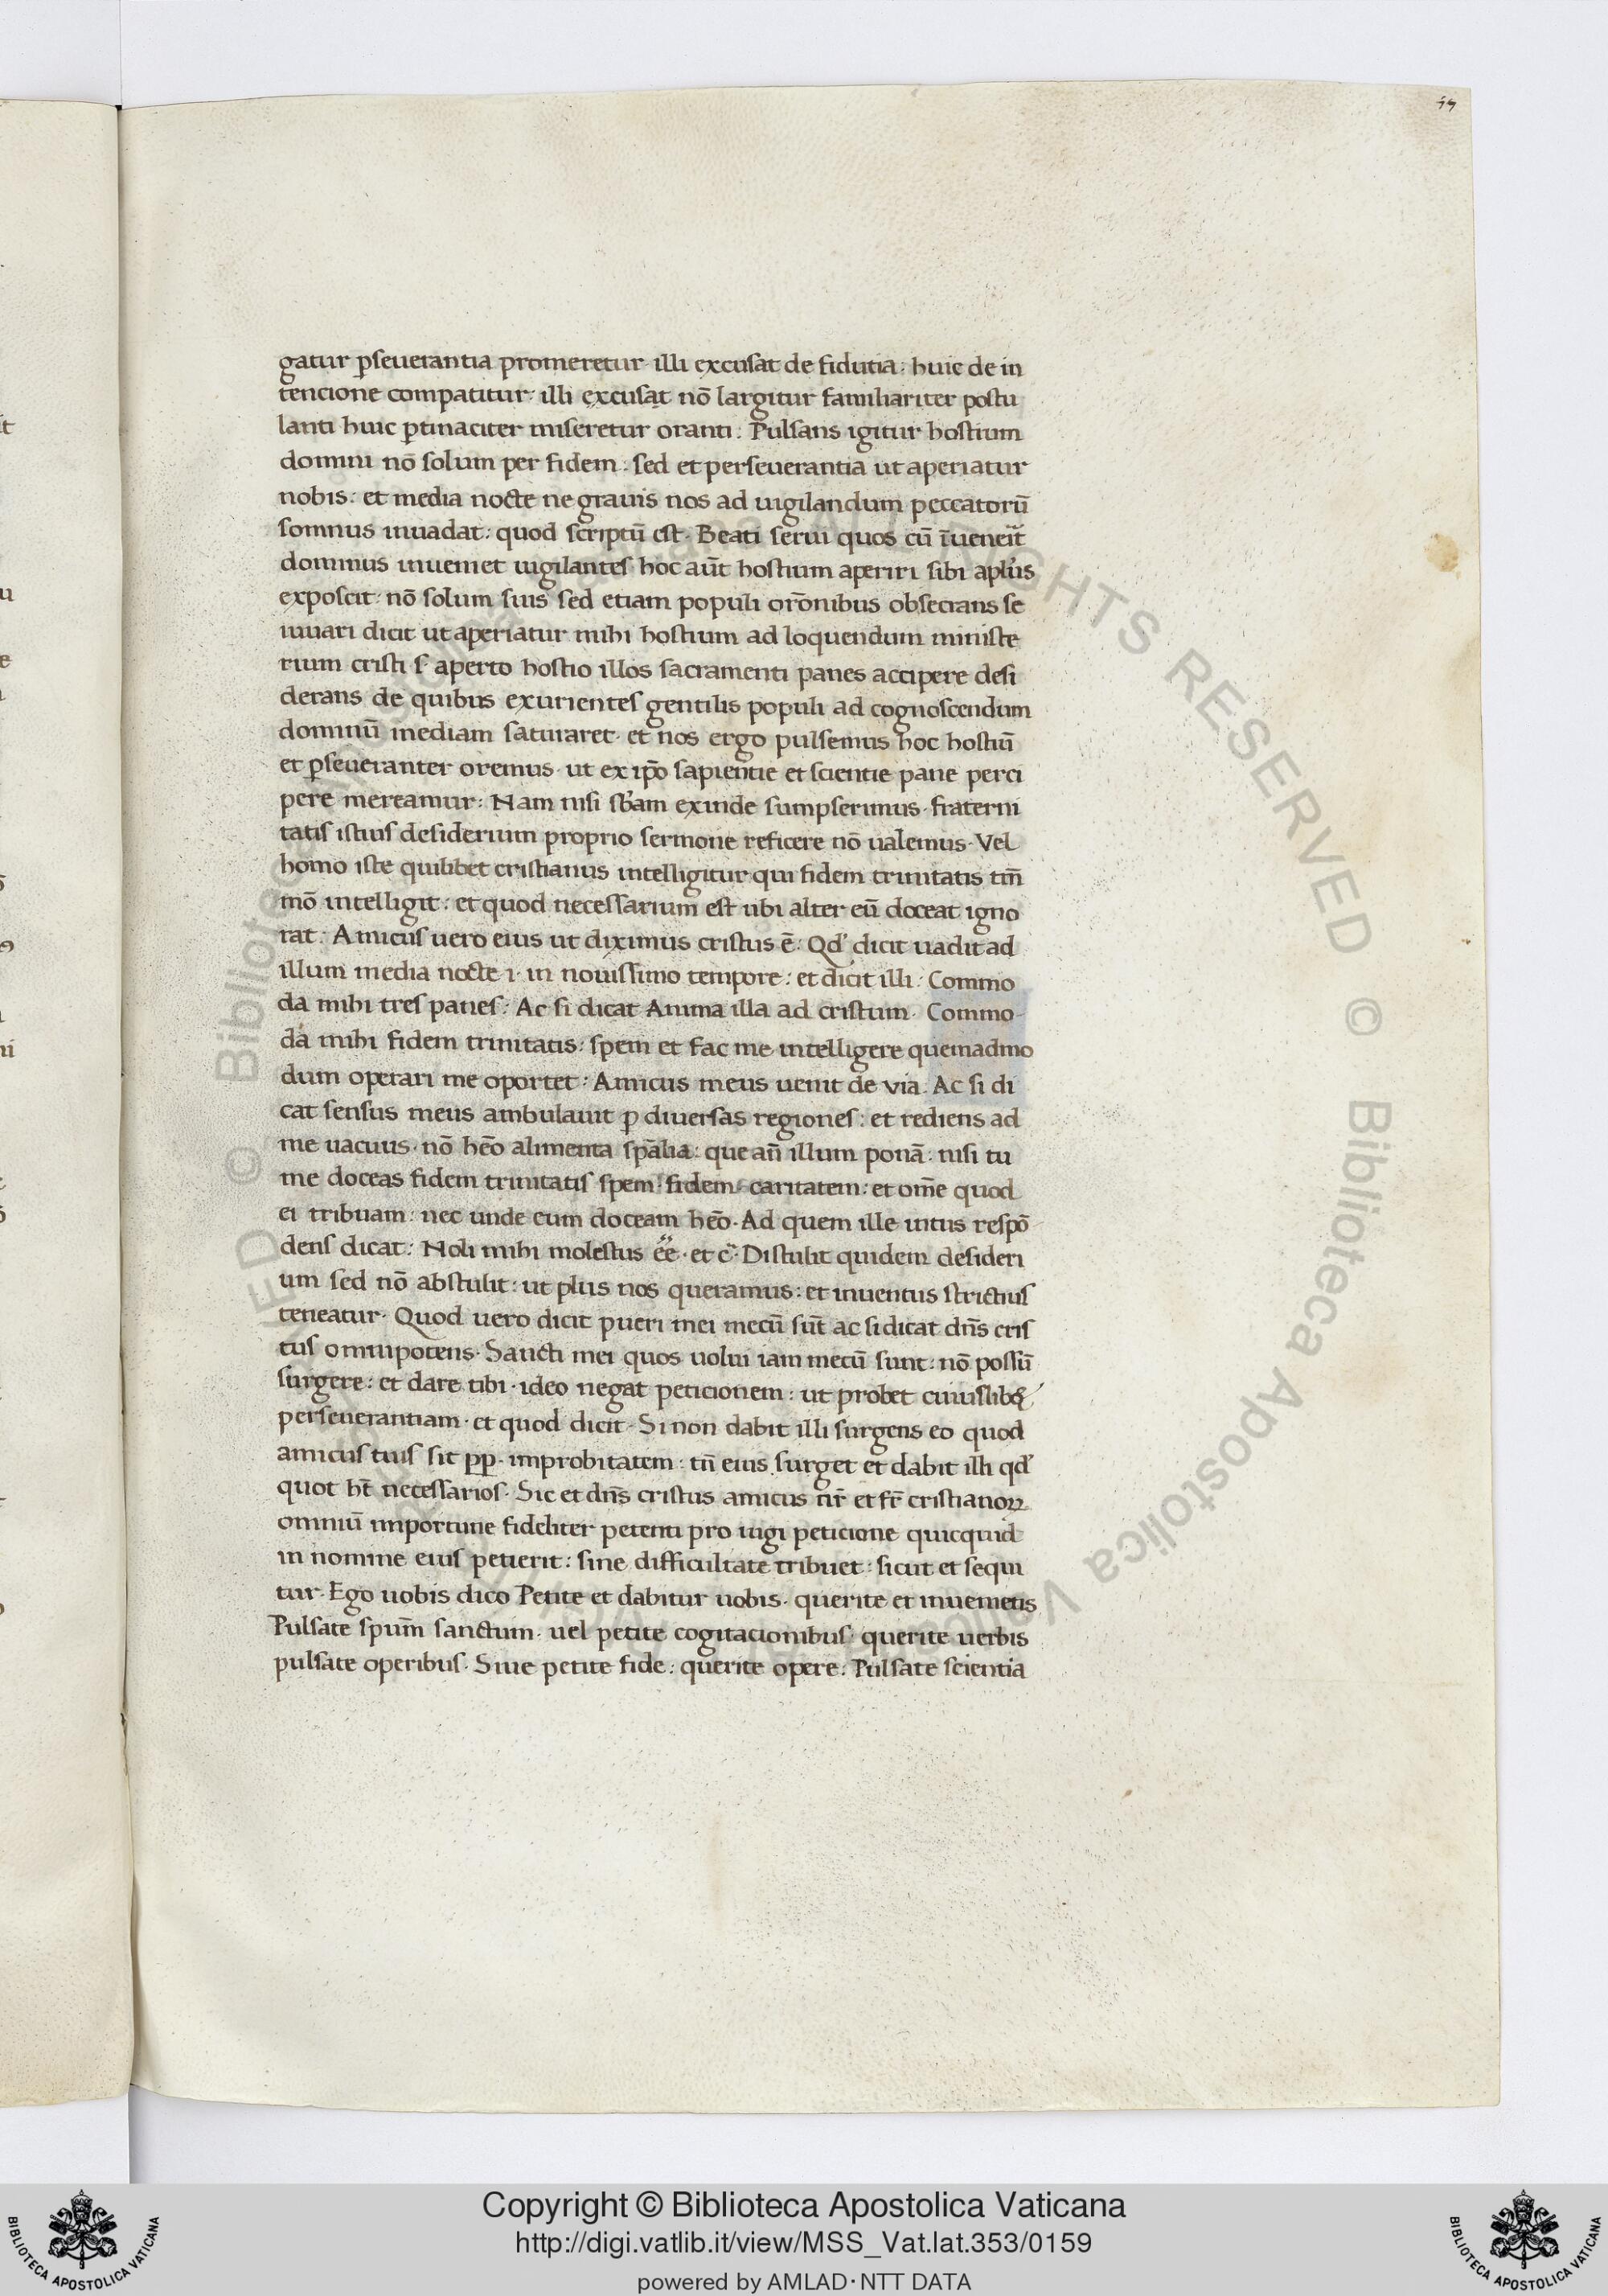 gatur ꝑseuerantia promeretur· illi excusat de fidutia: huic de in
tencione compatitur· illi excusat nō largitur familiariter postu
lanti huic ꝑtinaciter miseretur oranti: Pulsans igitur hostium
domini nō solum per fidem: sed et perseuerantia ut aperiatur
nobis: et media nocte ne grauis nos ad uigilandum peccatorū
somnus inuadat: quod scriptū est· Beati serui quos cū
dominus inueniet uigilantes· hoc aūt hostium aperiri sibi
exposcit: nō solum suis sed etiam populi orōnibus obsecrans se
iuuari dicit ut aperiatur mihi hostium ad loquendum ministe
rium cristi s· aperto hostio illos sacramenti panes accipere desi
derans de quibus exurientes gentilis populi ad cognoscendum
dominū mediam satuiaret· et nos ergo pulsemus hoc hostiū
et ꝑseueranter oremus· ut ex ip̄o sapientie et scientie pane perci
pere mereamur: Nam nisi exinde sumpserimus· fraterni
tatis istius desiderium proprio sermone reficere nō ualemus· Vel
homo iste quilibbet cristianus intelligitur qui fidem trinitatis tm̄
mō intelligit: et quod necessarium est ubi alter eū doceat igno
rat: Amicus uero eius ut diximus cristus ē: Qd' dicit uadit ad
illum media nocte ·i· in nouissimo tempore: et dicit illi: Commo
da mihi tres panes: Ac si dicat Anima illa ad cristum· Commo-
da mihi fidem trinitatis: spem et fac me intelligere quemadmo
dum operari me oportet: Amicus meus uenit de via: Ac si di
cat sensus meus ambulauit ꝑ diuersas regiones: et rediens ad
me uacuus· nō hēo alimenta sp̄alia: que an̄ illum ponā: nisi tu
me doceas fidem trinitatis spem: fidem· caritatem: et om̄e quod
ei tribuam: nec unde eum doceam hēo· Ad quem ille intus respō
dens dicat: Noli mihi molestus ēe· et c̄· Distulit quidem desideri
um sed nō abstulit: ut plus nos queramus: et inuentus strictius
teneatur· Quod uero dicit pueri mei mecū sūt ac si dicat dn̄s cris
tus omnipotens· Sancti mei quos uolui iam mecū sunt: nō possū
surgere: et dare tibi· ideo negat peticionem: ut probet cuiuslibꝫ
perseuerantiam· et quod dicit· Si non dabit illi surgens eo quod
amicus tuus sit ꝑꝑ· improbitatem: tn̄ eius surget et dabit illi qd'
quot ht̄ necessarios· Sic et dn̄s cristus amicus nr̄ et fr̄ cristianoꝝ
omniū importune fideliter petenti pro iugi peticione quicquid
in nomine eius petierit: sine difficultate tribuet: sicut et sequi
tur· Ego uobis dico Petite et dabitur uobis· querite et inuenietis
Pulsate spum̄ sanctum· uel petite cogitacionibus· querite uerbis
pulsate operibus· Siue petite fide: querite opere: Pulsate scientia
© Biblioteca Apostolica Vaticana
ALL RIGHTS RESERVED
Copyright © Biblioteca Apostolica Vaticana
http://digi.vatlib.it/view/MSS_Vat.lat.353/0159
powered by AMLAD·NTT DATA
BIBLIOTECA APOSTOLICA VATICANA
BIBLIOTECA APOSTOLICA VATICANA